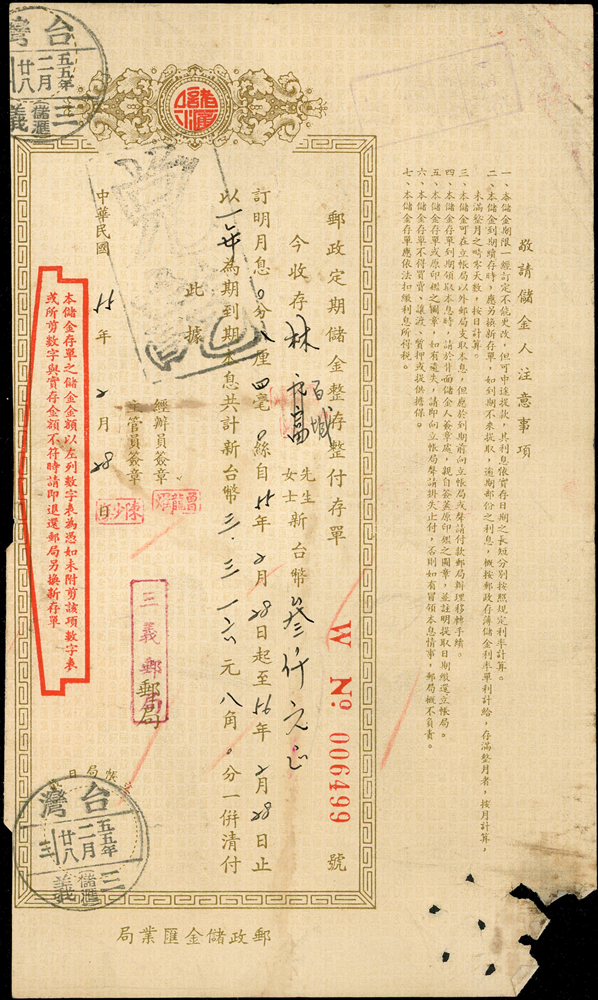 敬請儲金人注意事項
一、本儲金期限一經訂定不能更改，但可中途提款，其利息依實存日期之長短分別按照規定利率計算。
二、本儲金到期續存時，應另換新存單，如到期不來提取，逾期部份之利息，概按郵政存簿儲金利率單利計給，存滿整月者，按月計算，
未滿整月之畸零天數，按日計算。
三、儲金可在立帳局以外郵局支取本息，但應於到期前向立帳局或聲請付款郵局辦理移轉手續。
四、本儲金存單到期領取本息時，請於背面儲金人簽章處，親自簽蓋原印鑑之圖章，並註明提取日期繳還立帳局。
五、本儲金存單或原印鑑之圖章，如有遺失，請即向立帳局聲請掛失止付，否則如有冒領本息情事，郵局概不負責。
六、本儲金存單不得買賣、讓渡、質押或提供擔保。
七、本儲金存單應依法扣繳利息所得稅。
儲匯
郵政定期儲金整存整付存單
W No. 006499 號
今收存林 先生女士新台幣叁仟元正
訂明月息0分八厘四毫0絲自55年2月28日起至56年2月28日止
以一年為期到期本息共計新台幣三.三一六元八角0分一併清付
此據
經辦員簽章
主管員簽章
三義郵局
郵局
中華民國55年2月28日
本儲金存單之儲金金額以左列數字表為憑如未附剪該項數字表
或所剪數字與實存金額不符時請即退還郵局另換新存單
台灣
五五年
二月
廿八
三義
儲匯
台灣
五五年
二月
廿八
三義
儲匯
郵政儲金匯業局